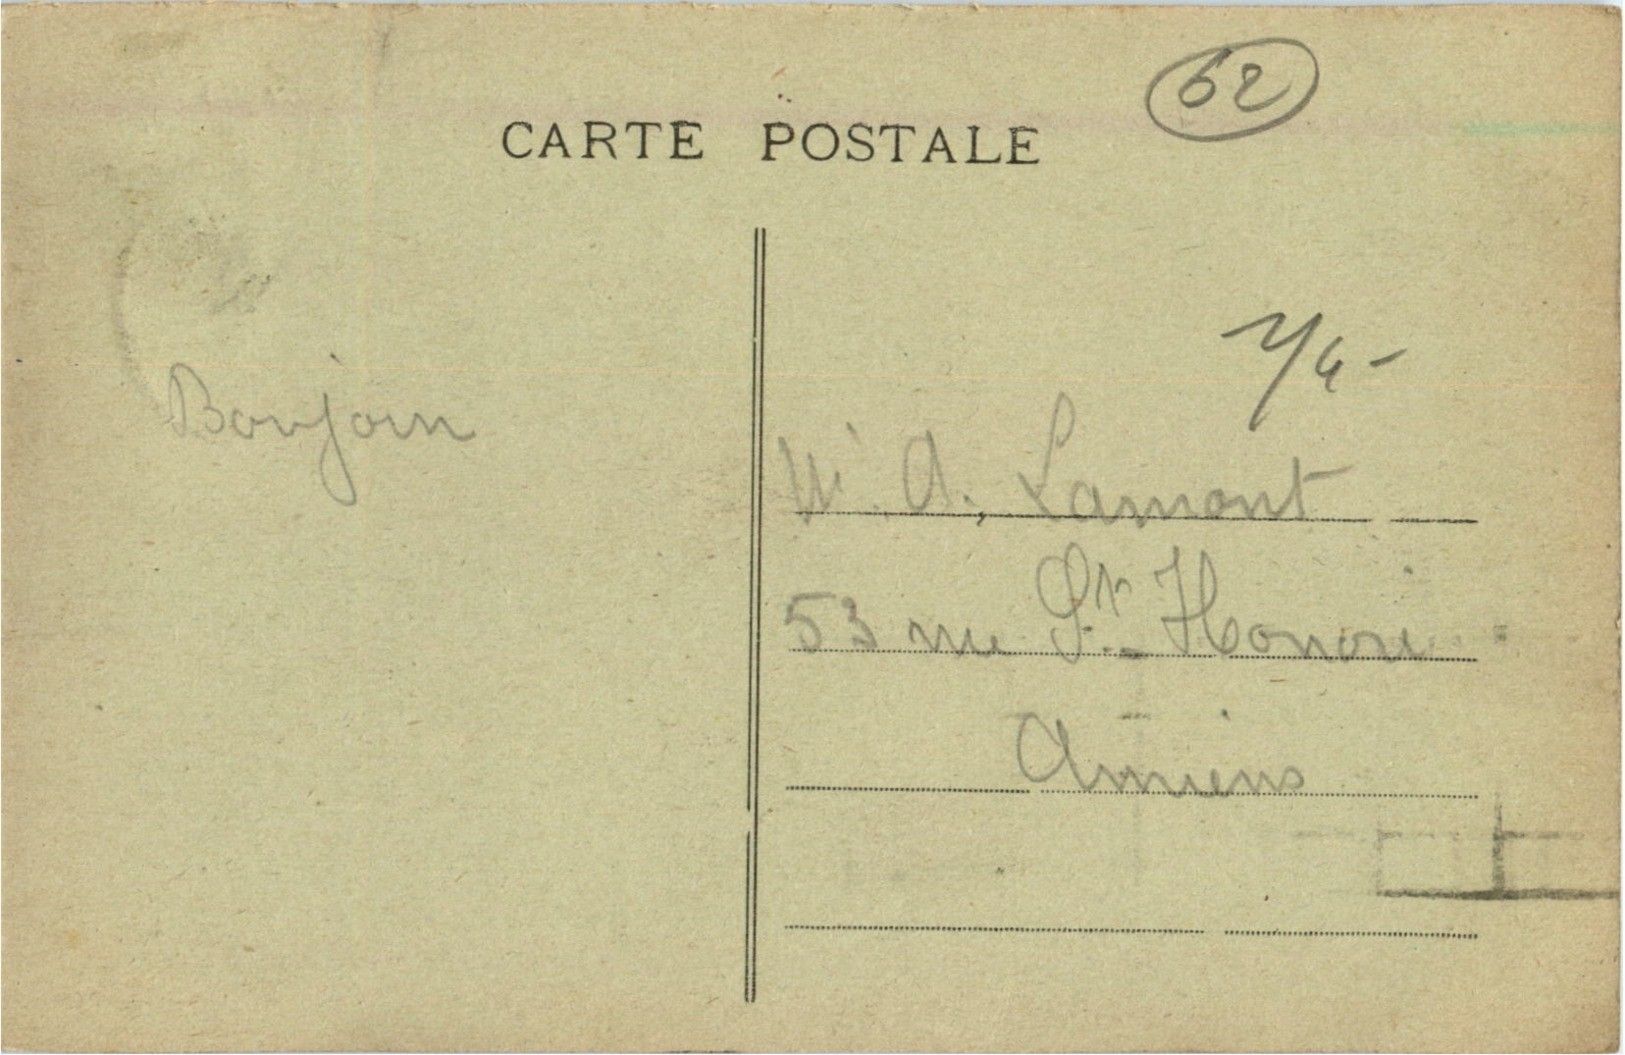 62
CARTE POSTALE
Bonjour
Mr. A. Lamont
53 rue St. Honoré
Amiens